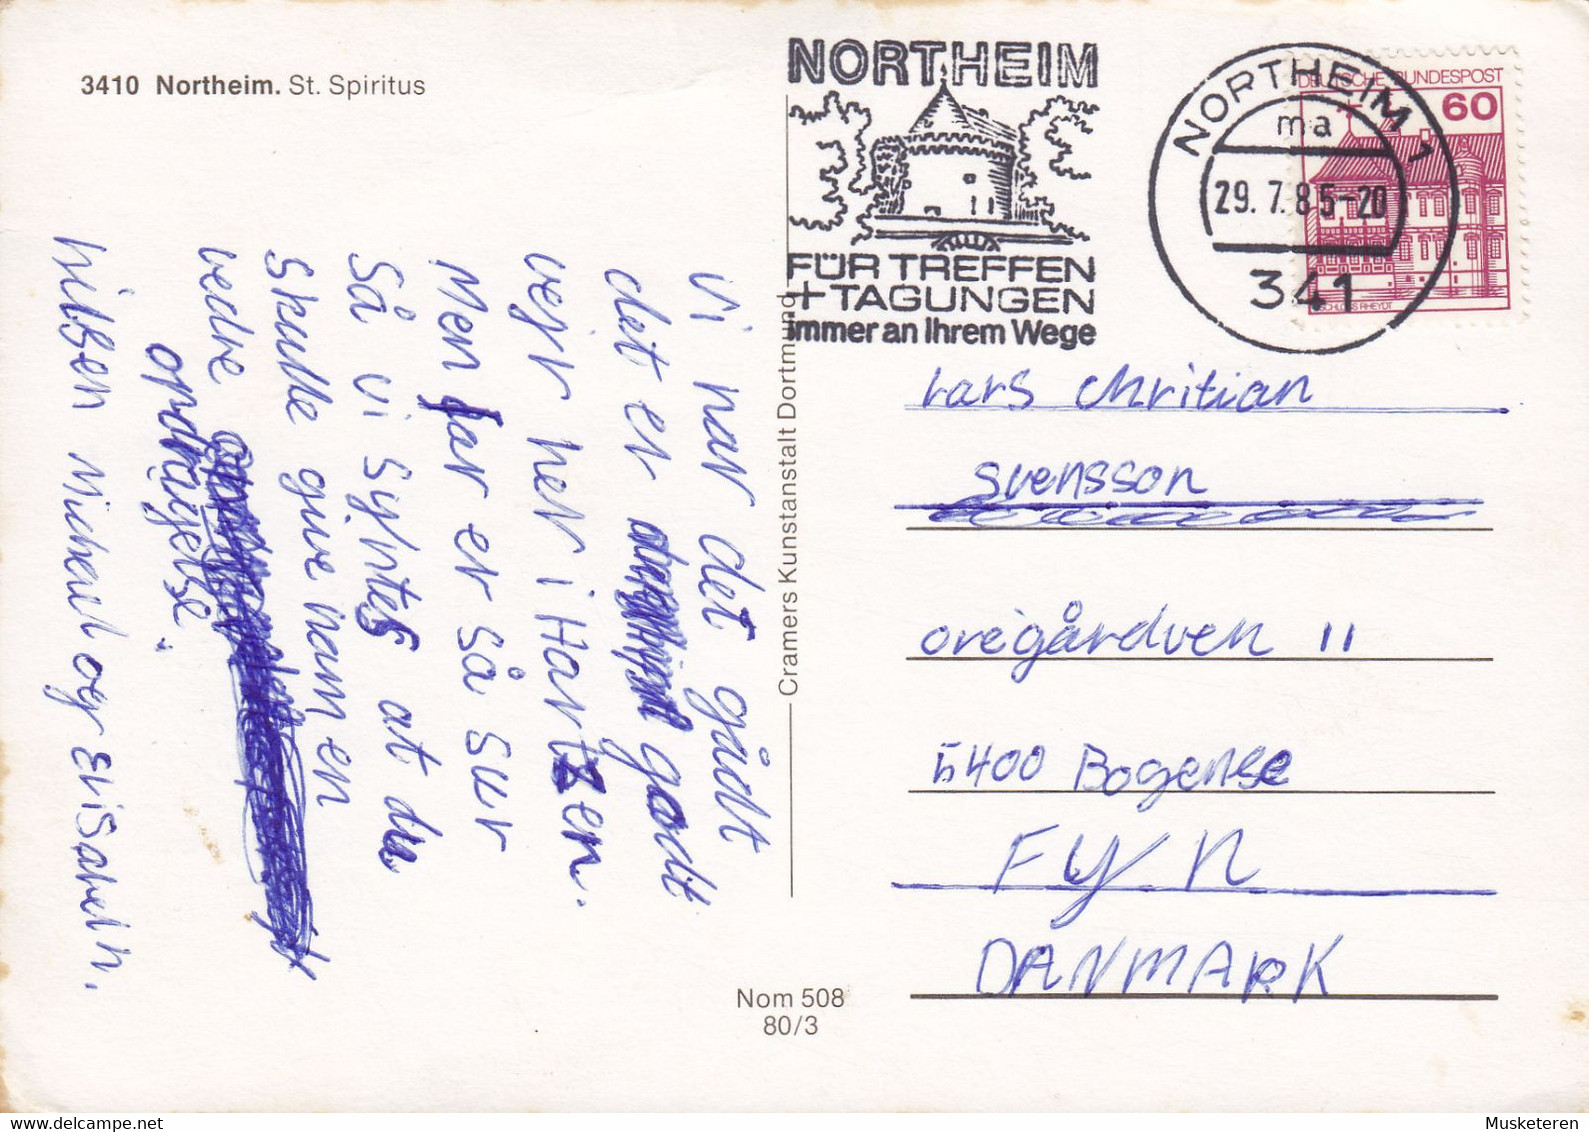 3410 Northeim. St. Spiritus
NORTHEIM
FÜR TREFFEN
+ TAGUNGEN
immer an Ihrem Wege
NORTHEIM 1
ma
29.7.85-20
341
DEUTSCHE BUNDESPOST
60
SCHLOSS RHEYDT
Vi har det gådt
det er godt
vejr her i Hartzen.
Men far er så sur
Så vi syntes at du
skulle give ham en
vedre
opdragelse.
hilsen Michael og Elisabeth.
Cramers Kunstanstalt Dortmund
Lars Chritian
Svensson
oregårdven 11
5400 Bogense
FYN
DANMARK
Nom 508
80/3
Musketeren